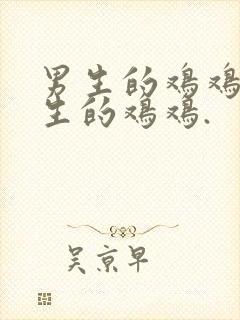 男生的鸡鸡
生的鸡鸡.
吴京早